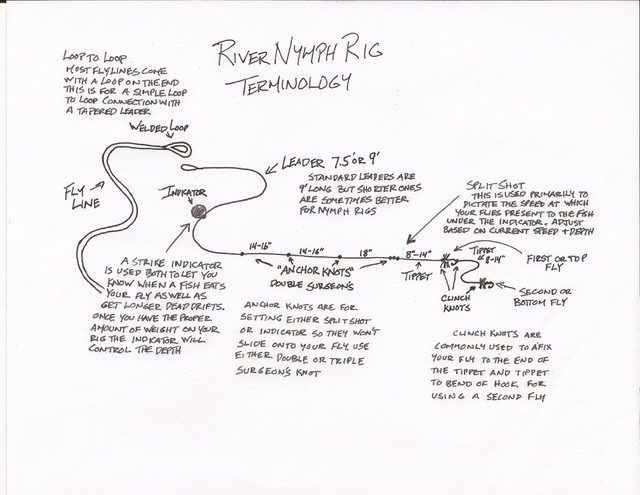 RIVER NYMPH RIG
TERMINOLOGY
LOOP TO LOOP
MOST FLYLINES COME
WITH A LOOP ON THE END
THIS IS FOR A SIMPLE LOOP
TO LOOP CONNECTION WITH
A TAPERED LEADER
WELDED LOOP
FLY
LINE
INDICATOR
LEADER 7.5' OR 9'
STANDARD LEADERS ARE
9' LONG BUT SHORTER ONES
ARE SOMETIMES BETTER
FOR NYMPH RIGS
SPLIT SHOT
THIS IS USED PRIMARILY TO
DICTATE THE SPEED AT WHICH
YOUR FLIES PRESENT TO THE FISH
UNDER THE INDICATOR. ADJUST
BASED ON CURRENT SPEED + DEPTH
14-16"
14-16"
18"
8"-14"
TIPPET
TIPPET
8-14"
FIRST OR TOP
FLY
"ANCHOR KNOTS"
DOUBLE SURGEONS
CLINCH
KNOTS
SECOND OR
BOTTOM FLY
A STRIKE INDICATOR
IS USED BOTH TO LET YOU
KNOW WHEN A FISH EATS
YOUR FLY AS WELL AS
GET LONGER DEAD DRIFTS.
ONCE YOU HAVE THE PROPER
AMOUNT OF WEIGHT ON YOUR
RIG THE INDICATOR WILL
CONTROL THE DEPTH
ANCHOR KNOTS ARE FOR
SETTING EITHER SPLIT SHOT
OR INDICATOR SO THEY WON'T
SLIDE ONTO YOUR FLY. USE
EITHER DOUBLE OR TRIPLE
SURGEON'S KNOT
CLINCH KNOTS ARE
COMMONLY USED TO AFIX
YOUR FLY TO THE END OF
THE TIPPET AND TIPPET
TO BEND OF HOOK FOR
USING A SECOND FLY